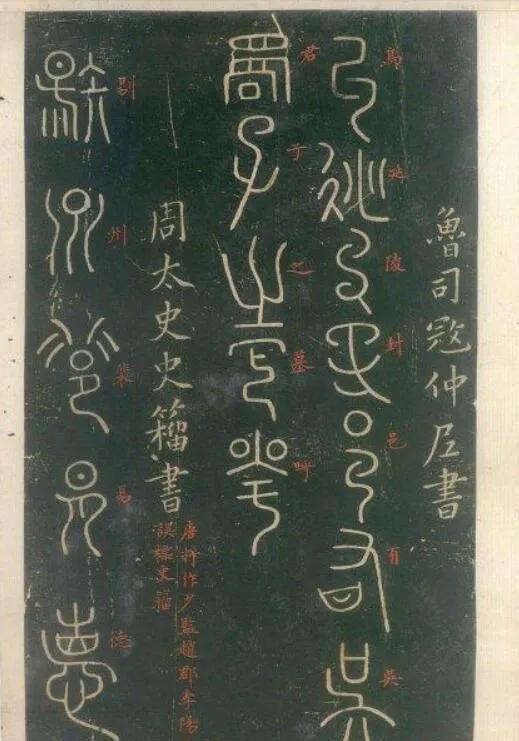 魯司寇仲尼書
烏延陵封邑有吳
君子之墓呼
周太史史籀書
唐將作少監趙郡李陽
誤標史籀
剔州裴易德